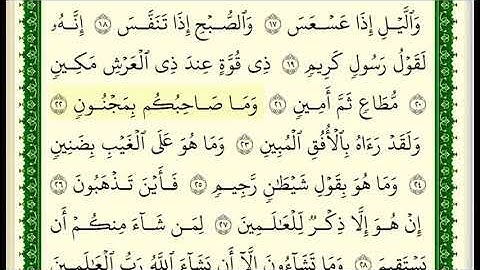 وَٱلَّيۡلِ إِذَا عَسۡعَسَ ١٧ وَٱلصُّبۡحِ إِذَا تَنَفَّسَ ١٨ إِنَّهُۥ
لَقَوۡلُ رَسُولٖ كَرِيمٖ ١٩ ذِي قُوَّةٍ عِندَ ذِي ٱلۡعَرۡشِ مَكِينٖ
٢٠ مُّطَاعٖ ثَمَّ أَمِينٖ ٢١ وَمَا صَاحِبُكُم بِمَجۡنُونٖ ٢٢
وَلَقَدۡ رَءَاهُ بِٱلۡأُفُقِ ٱلۡمُبِينِ ٢٣ وَمَا هُوَ عَلَى ٱلۡغَيۡبِ بِضَنِينٖ
٢٤ وَمَا هُوَ بِقَوۡلِ شَيۡطَٰنٖ رَّجِيمٖ ٢٥ فَأَيۡنَ تَذۡهَبُونَ ٢٦
إِنۡ هُوَ إِلَّا ذِكۡرٞ لِّلۡعَٰلَمِينَ ٢٧ لِمَن شَآءَ مِنكُمۡ أَن
يَسۡتَقِيمَ ٢٨ وَمَا تَشَآءُونَ إِلَّآ أَن يَشَآءَ ٱللَّهُ رَبُّ ٱلۡعَٰلَمِينَ